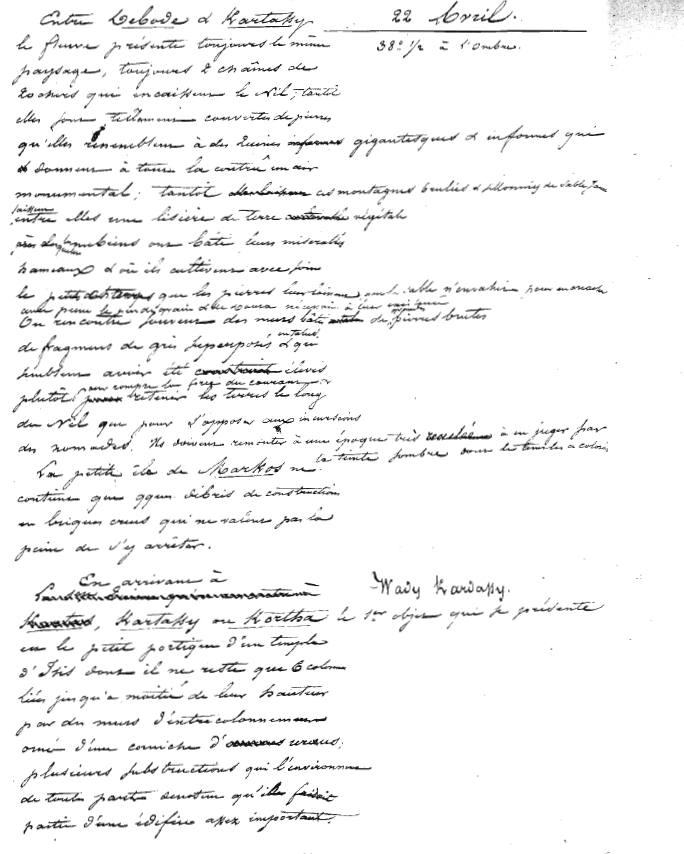 Entre Debode & Kartassy
22 Avril.
le fleuve présente toujours le même
38° 1/2 à l'ombre.
paysage, toujours 2 chaînes de
rochers qui encaissent le Nil; tantôt
elles sont tellement couvertes de pierres
qu'elles ressemblent à des ruines informes gigantesques & informes qui
donnent à toute la contrée un air
monumental; tantôt ces montagnes brulées & de sable
laissent
entre elles une lisière de terre végétale
les nubiens ont bâti leurs misérables
hameaux d'où ils cultivent avec soin
le petit que les pierres leur laissent,
On rencontre souvent des murs bâtis de pierres brutes
de fragments de grès superposés & qui
semblent avoir été construit élevés
pour rompre la force du courant &
plutôt pour retenir les terres le long
du Nil que pour s'opposer aux incursions
des nomades. Ils doivent remonter à une époque très reculée à en juger par
la teinte sombre
La petite île de Markos ne
contient que qques débris de constructions
en briques crues qui ne valent pas la
peine de s'y arrêter.
En arrivant à
Wady Kardassy.
Kartassy ou Kortha le 1er objet qui se présente
est le petit portique d'un temple
d'Isis dont il ne reste que 6 colonnes
liées jusqu'à moitié de leur hauteur
par des murs d'entrecolonnement
orné d'une corniche d' uraeus;
plusieurs substructions qui l'environnent
de toutes parts denotent qu'il faisait
partie d'une édifice assez important.